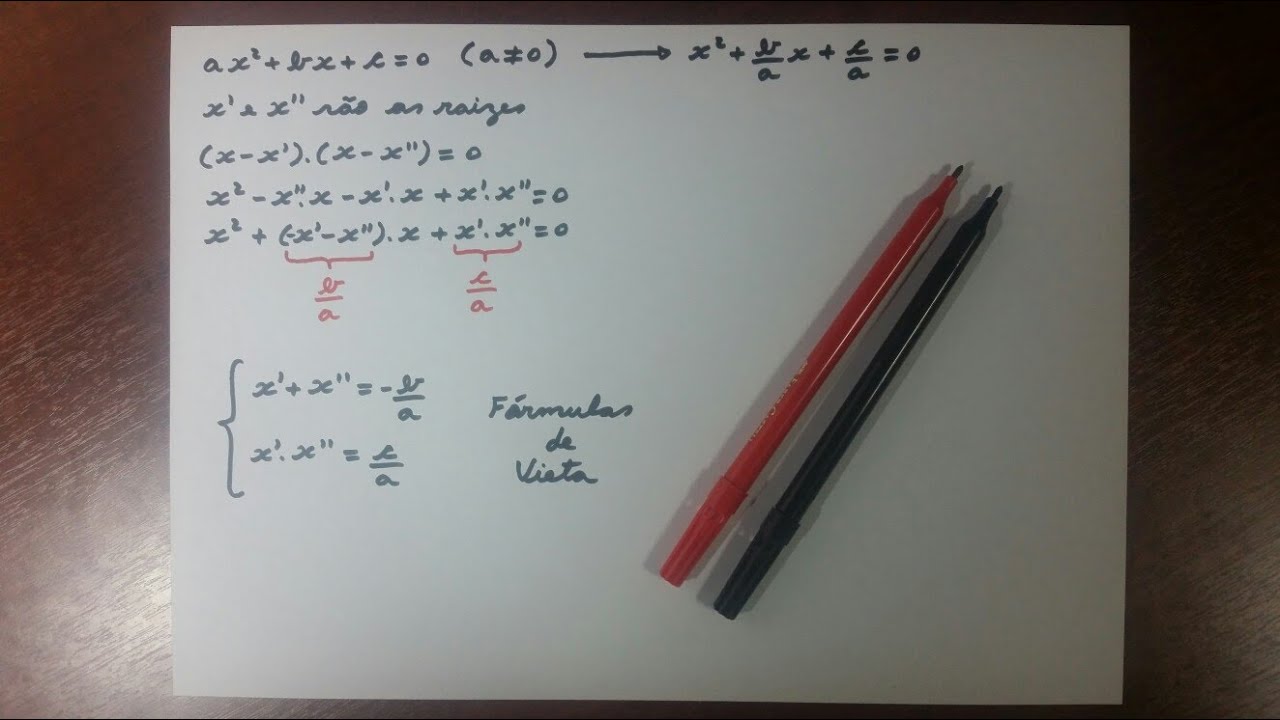 ax² + bx + c = 0 (a ≠ 0) ⟶ x² + b/a x + c/a = 0
x' e x'' são as raizes
(x - x').(x - x'') = 0
x² - x''.x - x'.x + x'.x'' = 0
x² + (-x' - x'').x + x'.x'' = 0
b/a c/a
x' + x'' = -b/a
x'.x'' = c/a
Fórmulas
de
Vieta